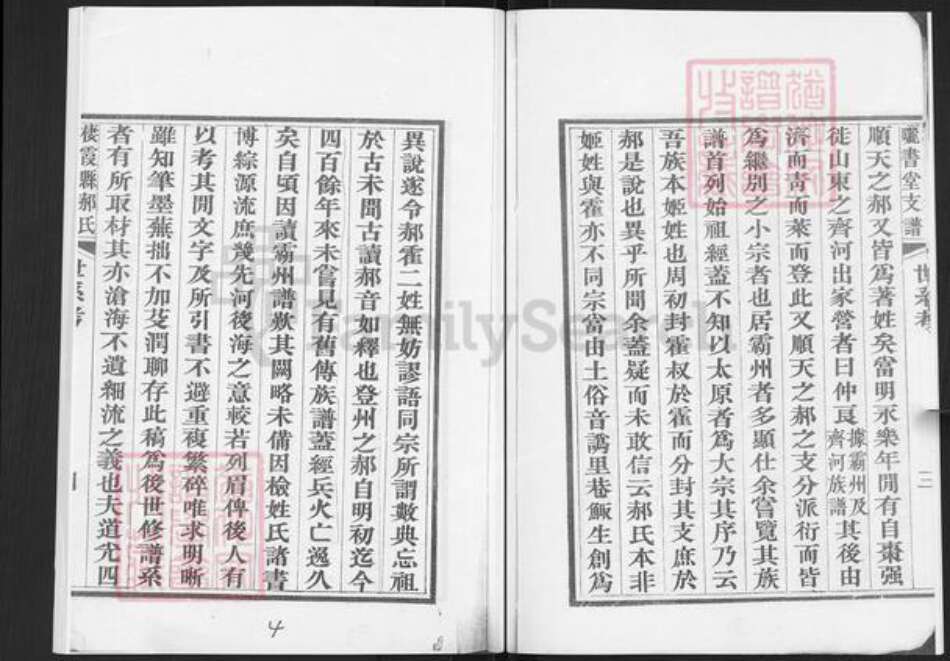 曬書堂支譜 世系考 三
順天之郝又皆爲著姓矣當明永樂年閒有自棗强
徙山東之齊河出家營者曰仲良據霸州及齊河族譜其後由
濟而靑而萊而登此又順天之郝之支分派衍而皆
爲繼別之小宗者也居霸州者多顯仕余嘗覽其族
譜首列始祖經蓋不知以太原者爲大宗其序乃云
吾族本姬姓也周初封霍叔於霍而分封其支庶於
郝是說也異乎所聞余蓋疑而未敢信云郝氏本非
姬姓與霍亦不同宗當由土俗音譌里巷鯫生創爲
異說遂令郝霍二姓無妨謬語同宗所謂數典忘祖
於古未聞古讀郝音如釋也登州之郝自明初迄今
四百餘年來未嘗見有舊傳族譜蓋經兵火亡逸久
矣自頃因讀霸州譜歎其闕略未備因檢姓氏諸書
博綜源流庶幾先河後海之意較若列眉俾後人有
以考其閒文字及所引書不避重複繁碎唯求明晰
雖知筆墨蕪拙不加芟潤聊存此稿爲後世修譜系
者有所取材其亦滄海不遺細流之義也夫道光四
棲霞縣郝氏 世系考
4
FamilySearch